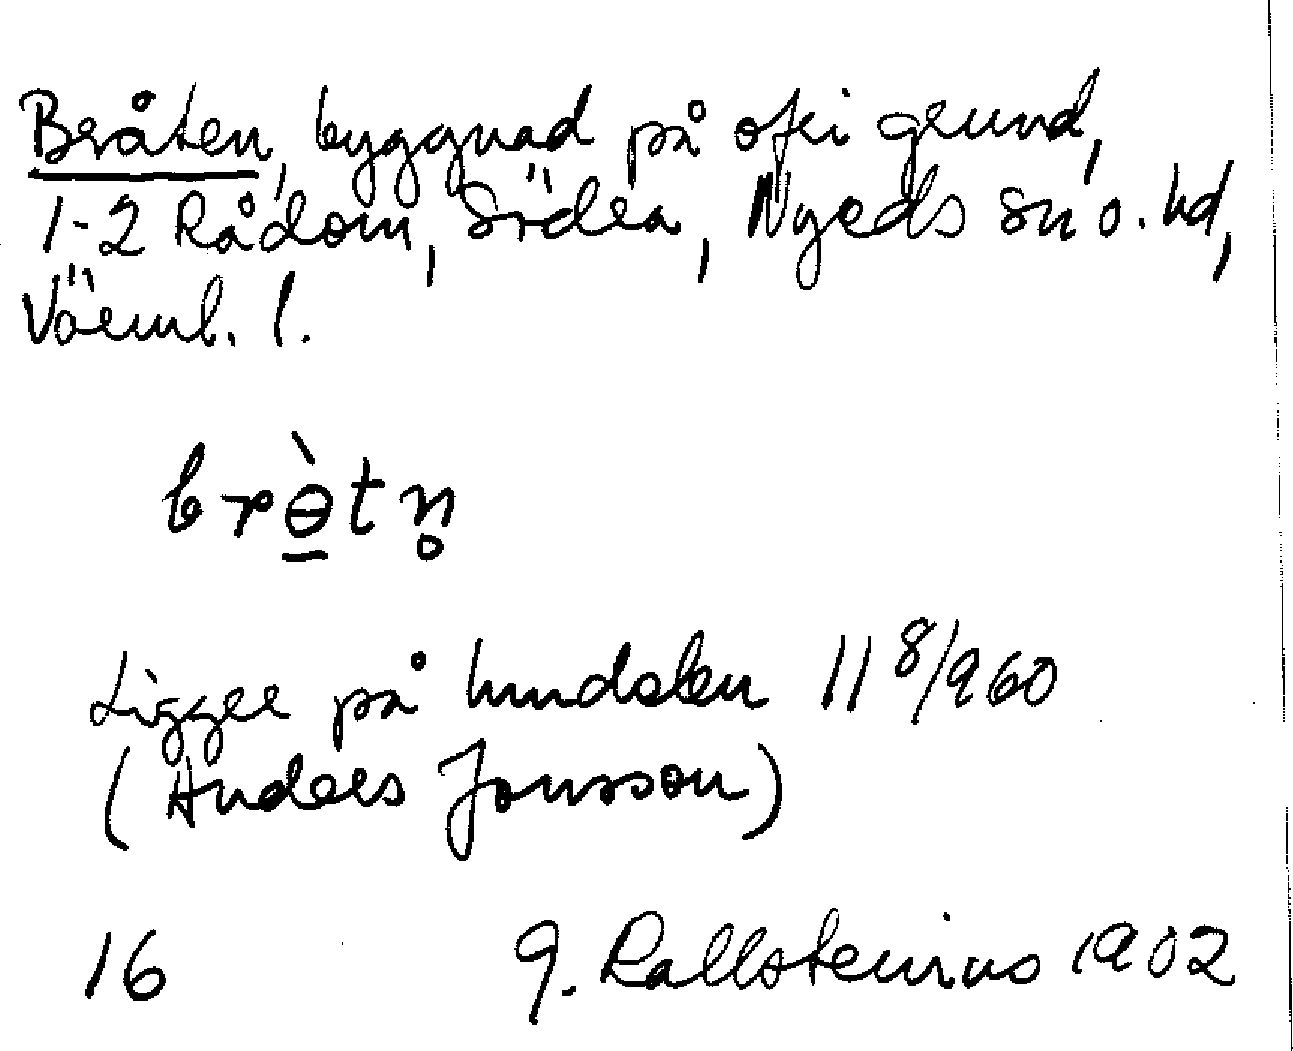 Bråten, byggnad på ofri grund,
1-2 Rådom, Södra, Nyeds sn o. hd,
Värml. l.
brɵ̀tn̥
Ligger på hundelen 11 8/960
(Anders Jonsson)
16 G. Kallstenius 1902